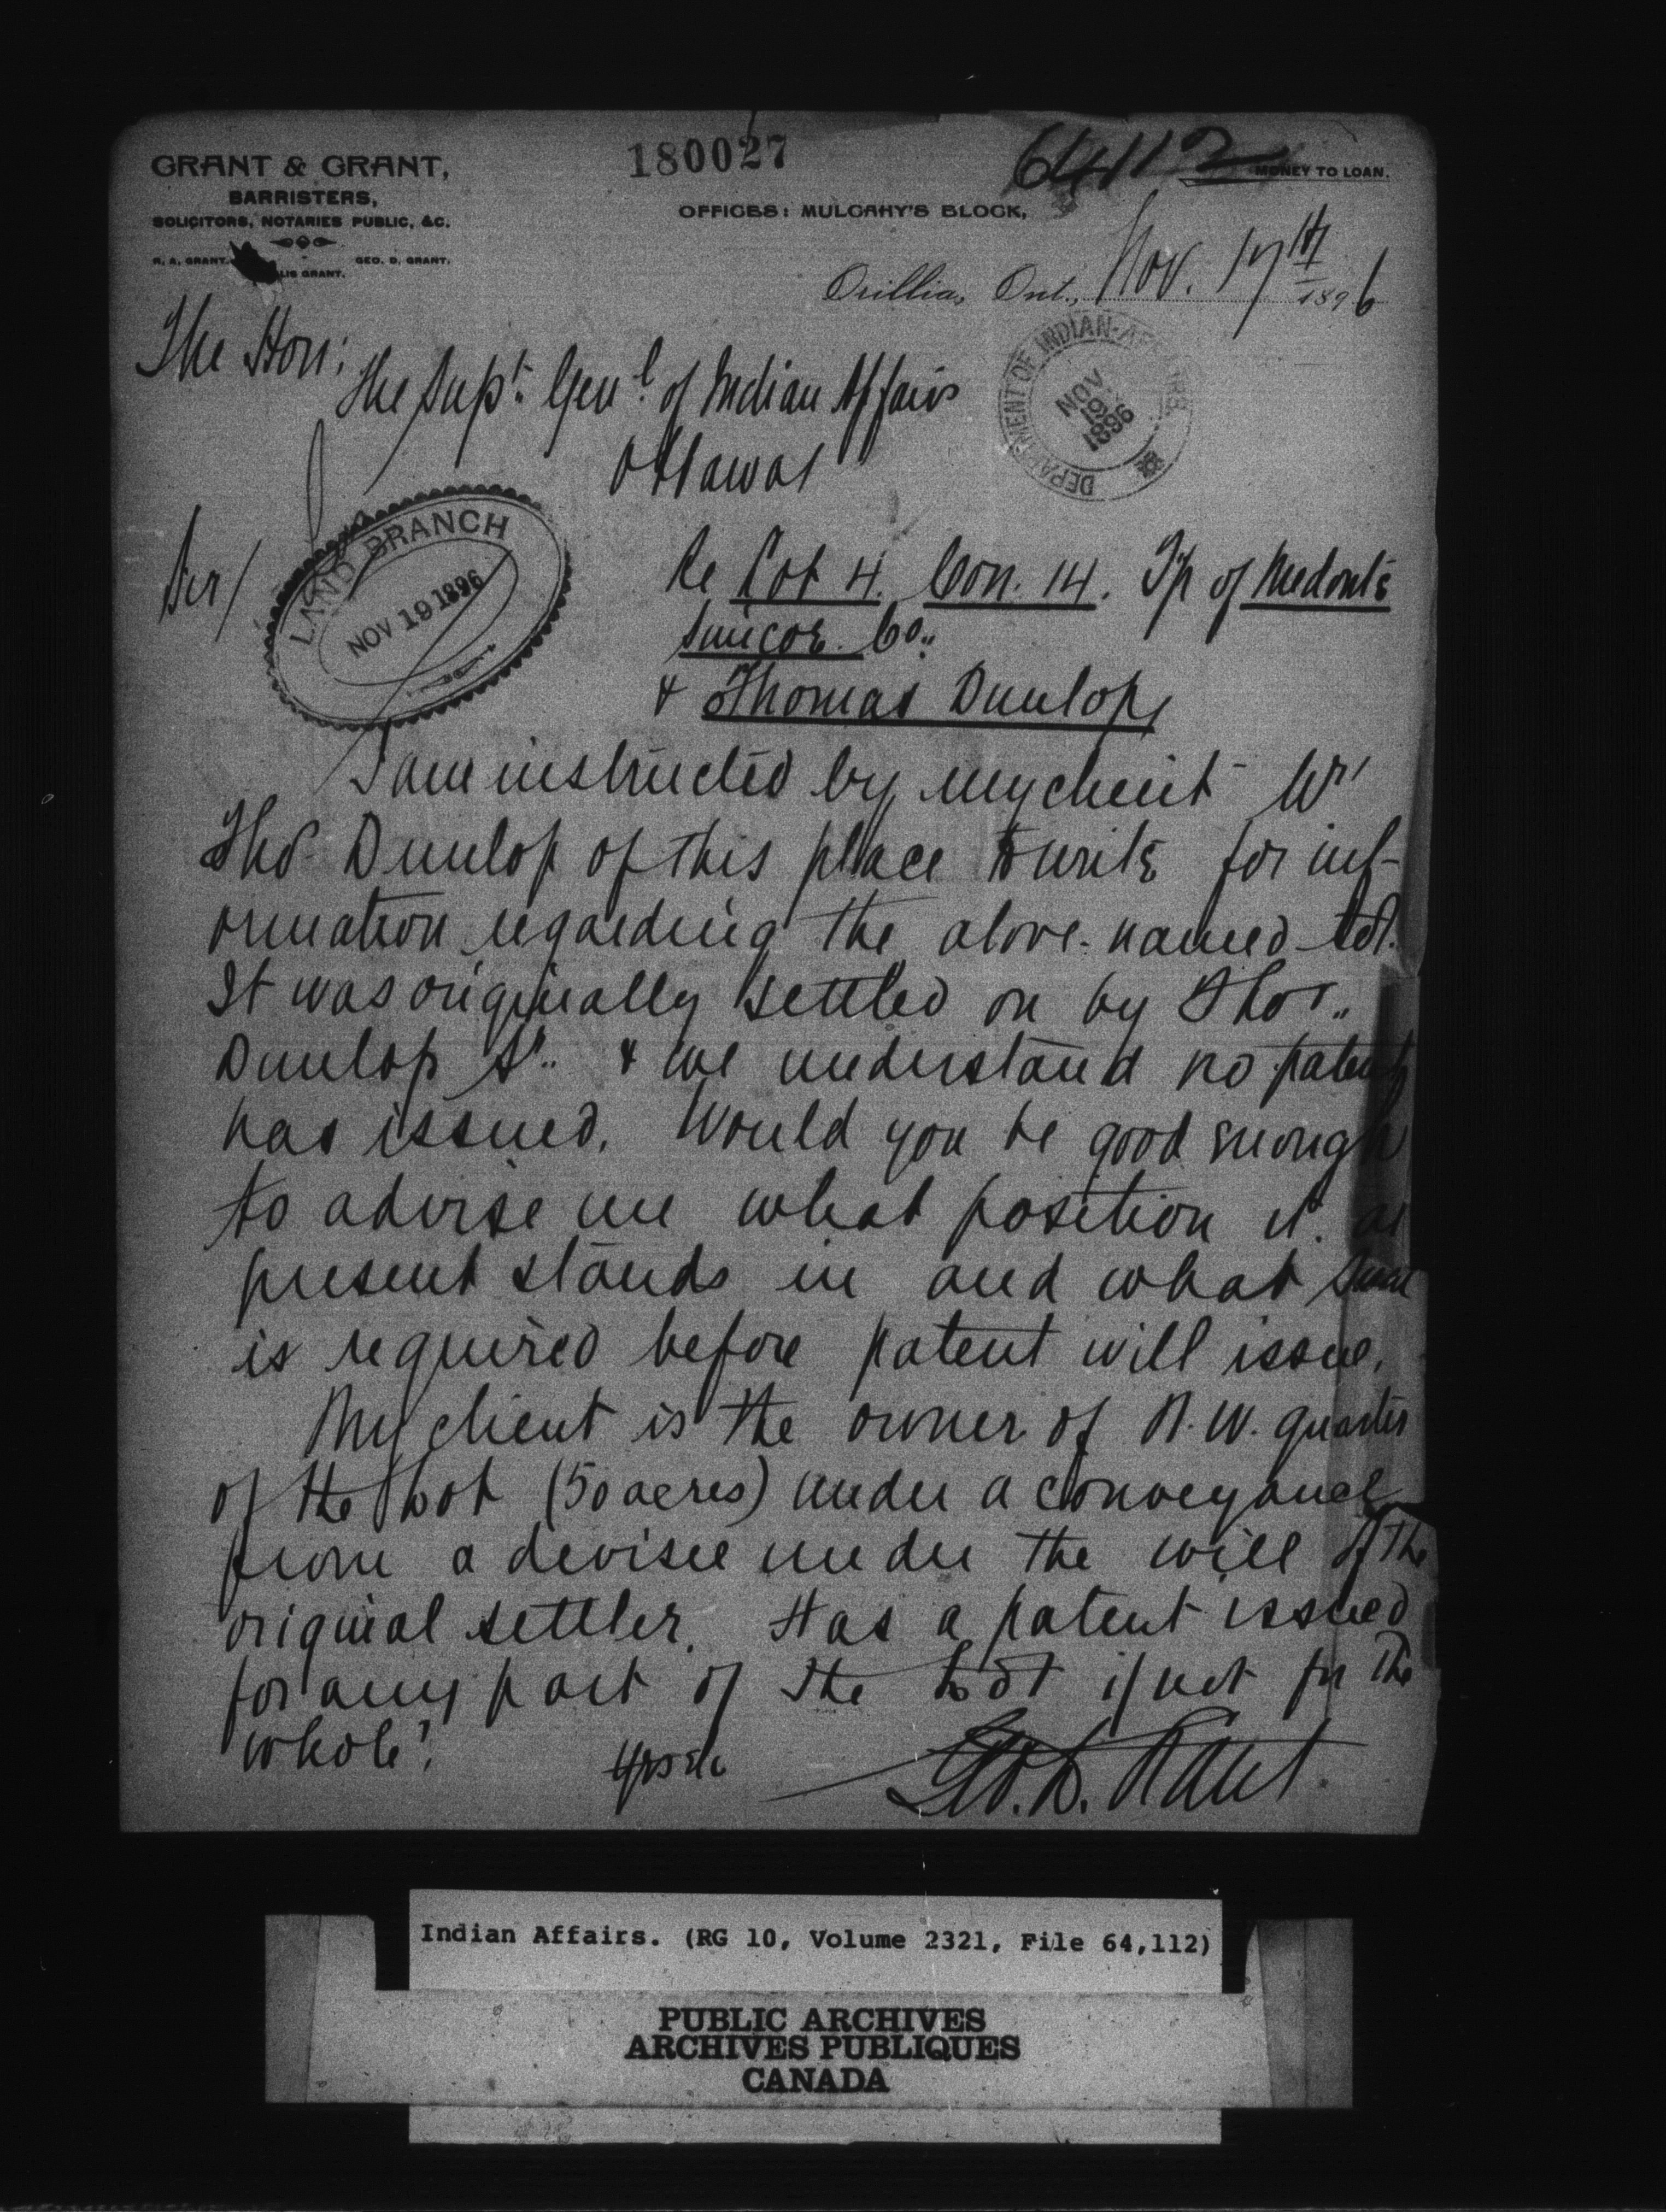 GRANT & GRANT,
BARRISTERS,
SOLICITORS, NOTARIES PUBLIC, &C.
R. A. GRANT. GEO. D. GRANT.
LIS GRANT.
180027
64112
MONEY TO LOAN.
OFFICES: MULCAHY'S BLOCK,
Orillia, Ont., Nov. 17th 1896
The Hon:
The Supt. Genl. of Indian Affairs
Ottawa
DEPARTMENT OF INDIAN AFFAIRS.
NOV 19 1896
Sir/
LAND BRANCH
NOV 19 1896
Re Lot 4. Con. 14. Tp of Medonte
Simcoe Co..
& Thomas Dunlop
I am instructed by my client Mr
Thos Dunlop of this place to write for inf-
ormation regarding the above-named lot.
It was originally settled on by Thos..
Dunlop Sr.. & we understand no patent
has issued. Would you be good enough
to advise me what position it at
present stands in and what sum
is required before patent will issue.
My client is the owner of N.W. quarter
of the Lot (50 acres) under a conveyance
from a devisee under the will of the
original settler. Has a patent issued
for any part of the Lot if not for the
whole?
Yrs etc
Geo. D. Grant
Indian Affairs. (RG 10, Volume 2321, File 64,112)
PUBLIC ARCHIVES
ARCHIVES PUBLIQUES
CANADA